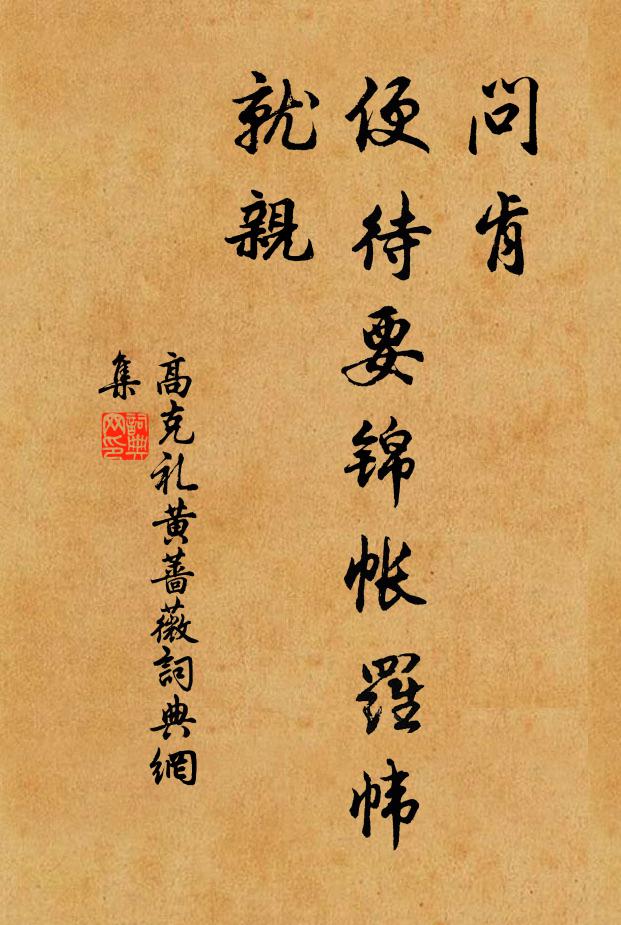 問肯
便待要錦帐羅帏
就親
高克礼黄薔薇詞典網
集
詞典
网印